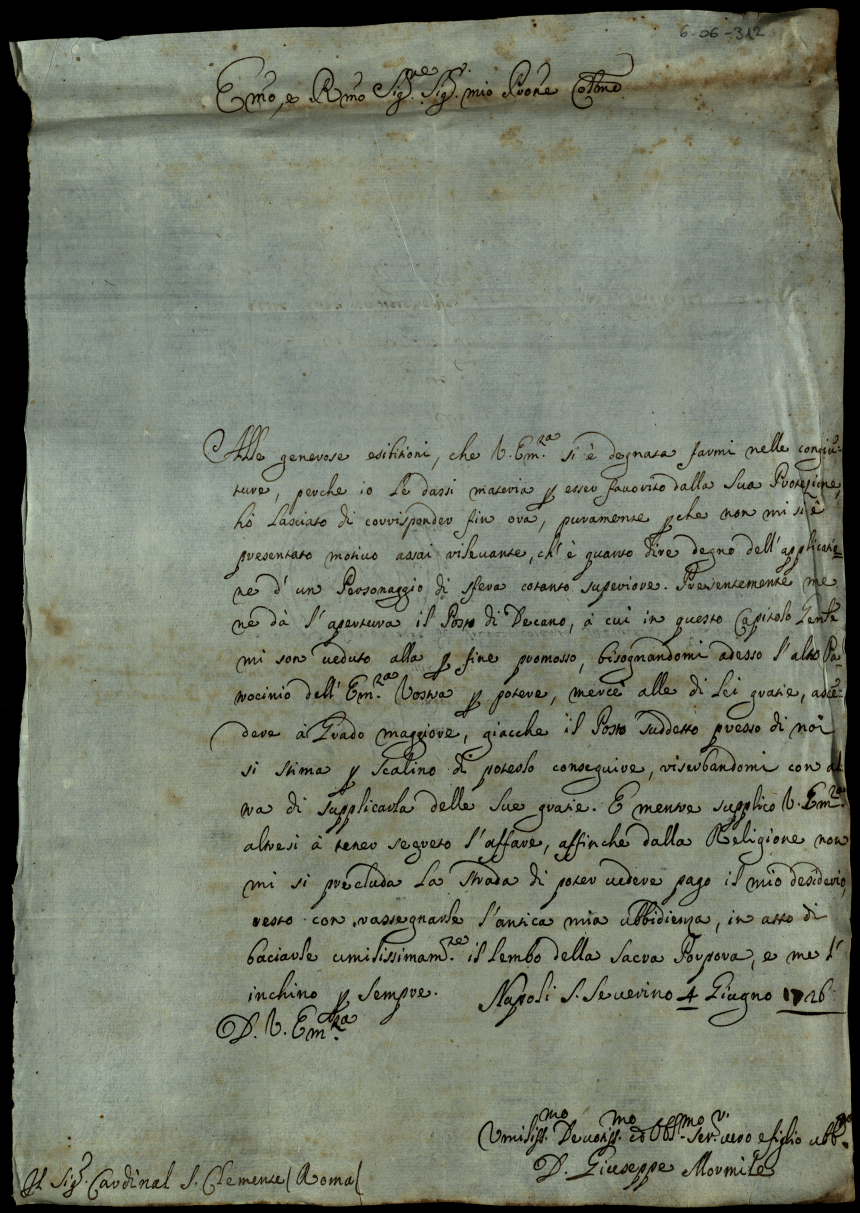 6-06-312
Emo, e Rmo Sig.re Sig.r mio Prone Colmo
Alle generose esibitioni, che V. Em.za si è degnata farmi nelle congiu=
ture, perche io le dassi materia p esser favorito dalla Sua Protezione,
hò lasciato di corrisponder fin ora, puramente pche non mi si è
presentato motivo assai rilevante, ch' è quanto dire degno dell' applicatio=
ne d' un Personaggio di sfera cotanto superiore. Presentemente me
ne dà l' apertura il Posto di Decano, à cui in questo Capitolo Genle
mi son veduto alla p fine promosso, bisognandomi adesso l' alto Pa=
trocinio dell' Em.za Vostra p potere, mercè alle di Lei gratie, asce=
dere à Grado maggiore, giacche il Posto suddetto presso di noi
si stima p scalino di poterlo conseguire, riserbandomi con al
tra di supplicarla delle Sue gratie. E mentre supplico V. Em.za
altresi à tener segreto l' affare, affinche dalla Religione non
mi si precluda la strada di poter vedere pago il mio desiderio,
resto con rassegnarle l' antica mia ubbidienza, in atto di
baciarle umilissimam.te il lembo della Sacra Porpora, e me l'
inchino p sempre. Napoli S. Severino 4 Giugno 1726
D. V. Em.za
Umiliss.mo Devotiss.mo ed Obb.mo Ser.r vero e figlio ubb.mo
D. Giuseppe Mormile
Il Sig.r Cardinal S. Clemente (Roma(